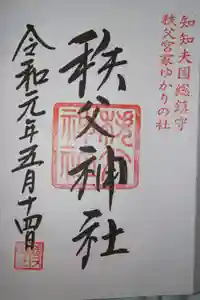 知知夫国総鎮守
秩父宮家ゆかりの社
秩父神社
令和元年五月十四日